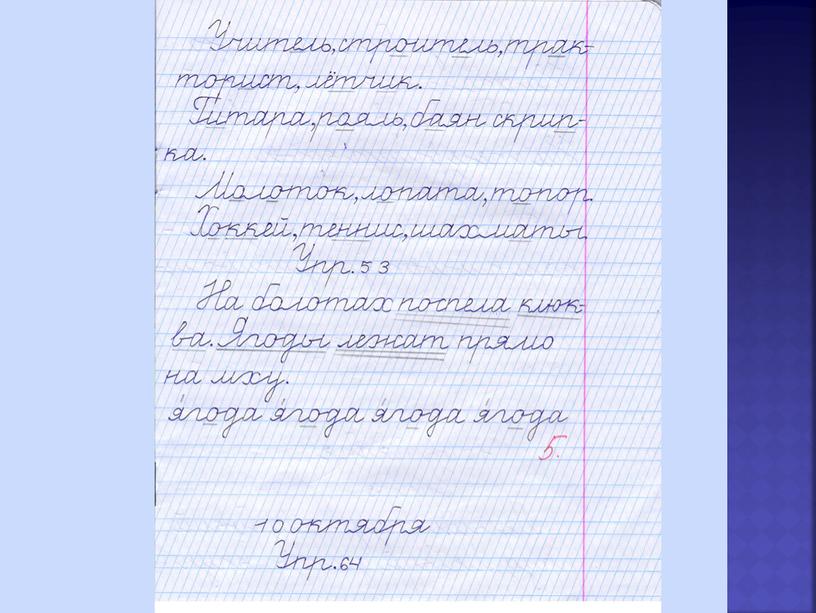 Учитель, строитель, трак-
торист, лётчик.
Гитара, рояль, баян скрип-
ка.
Молоток, лопата, топор.
Хоккей, теннис, шахматы.
Упр. 53
На болотах поспела клюк-
ва. Ягоды лежат прямо
на мху.
я́года я́года я́года я́года
5.
10 октября
Упр. 64